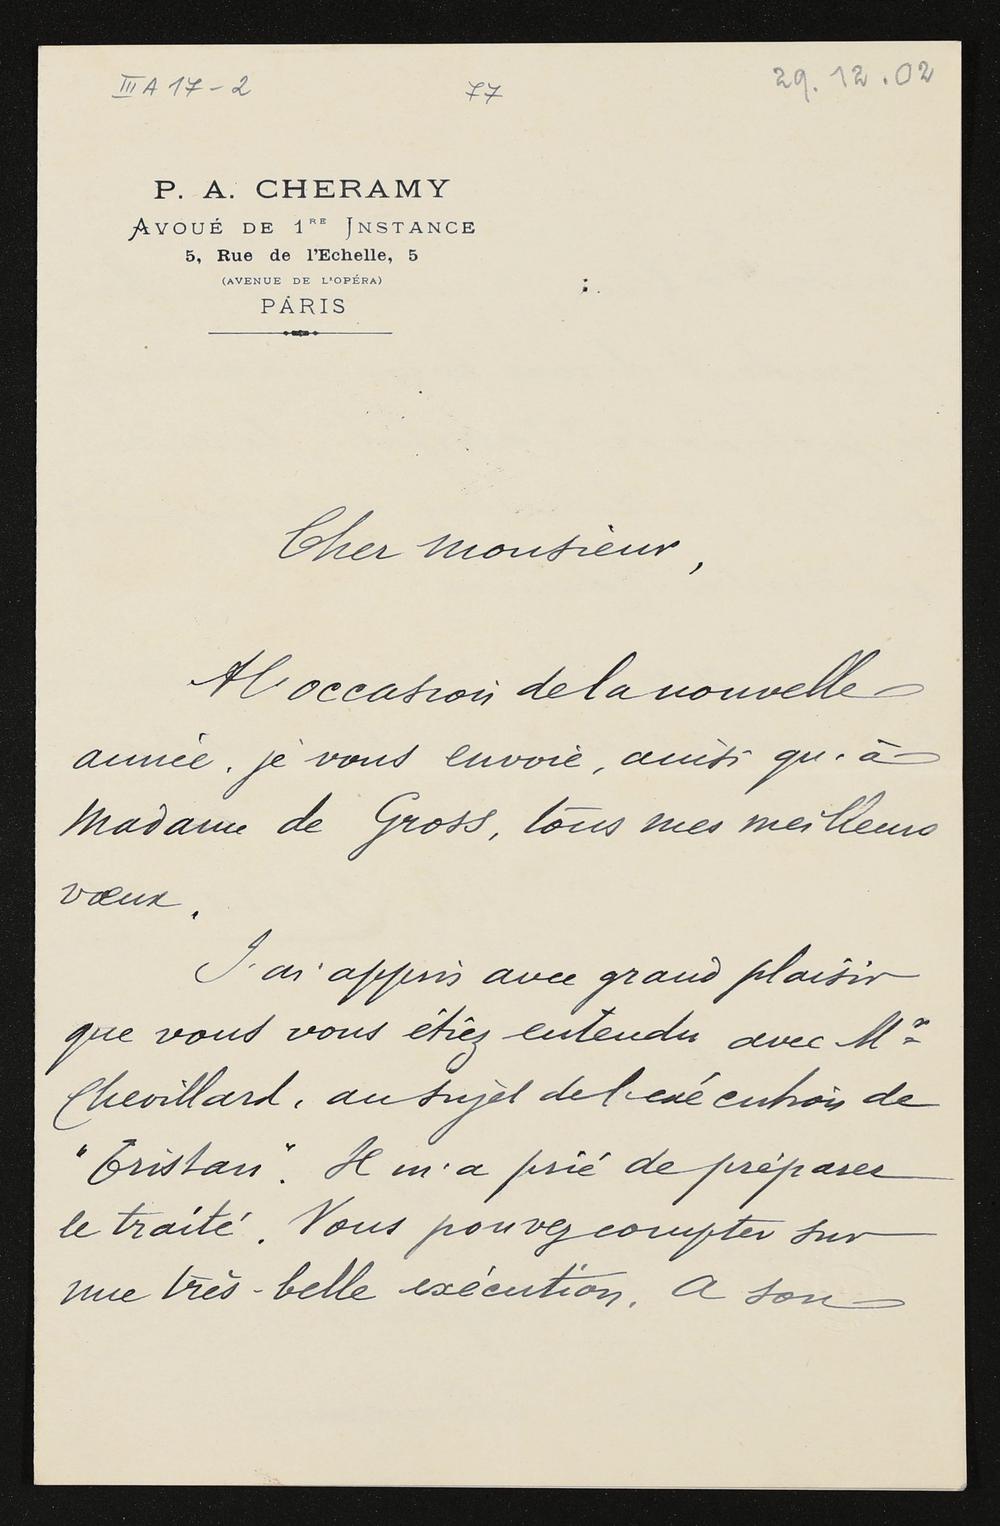 III A 17-2
77
29.12.02
P. A. CHERAMY
AVOUÉ DE 1RE INSTANCE
5, Rue de l'Echelle, 5
(AVENUE DE L'OPÉRA)
PARIS
Cher Monsieur,
A l'occasion de la nouvelle
année, je vous envoie, ainsi qu'à
Madame de Gross, tous mes meilleurs
vœux.
J'ai appris avec grand plaisir
que vous vous étiez entendu avec Mr
Chevillard, au sujet de l'exécution de
"Tristan". Il m'a prié de préparer
le traité. Vous pouvez compter sur
une très-belle exécution. A son